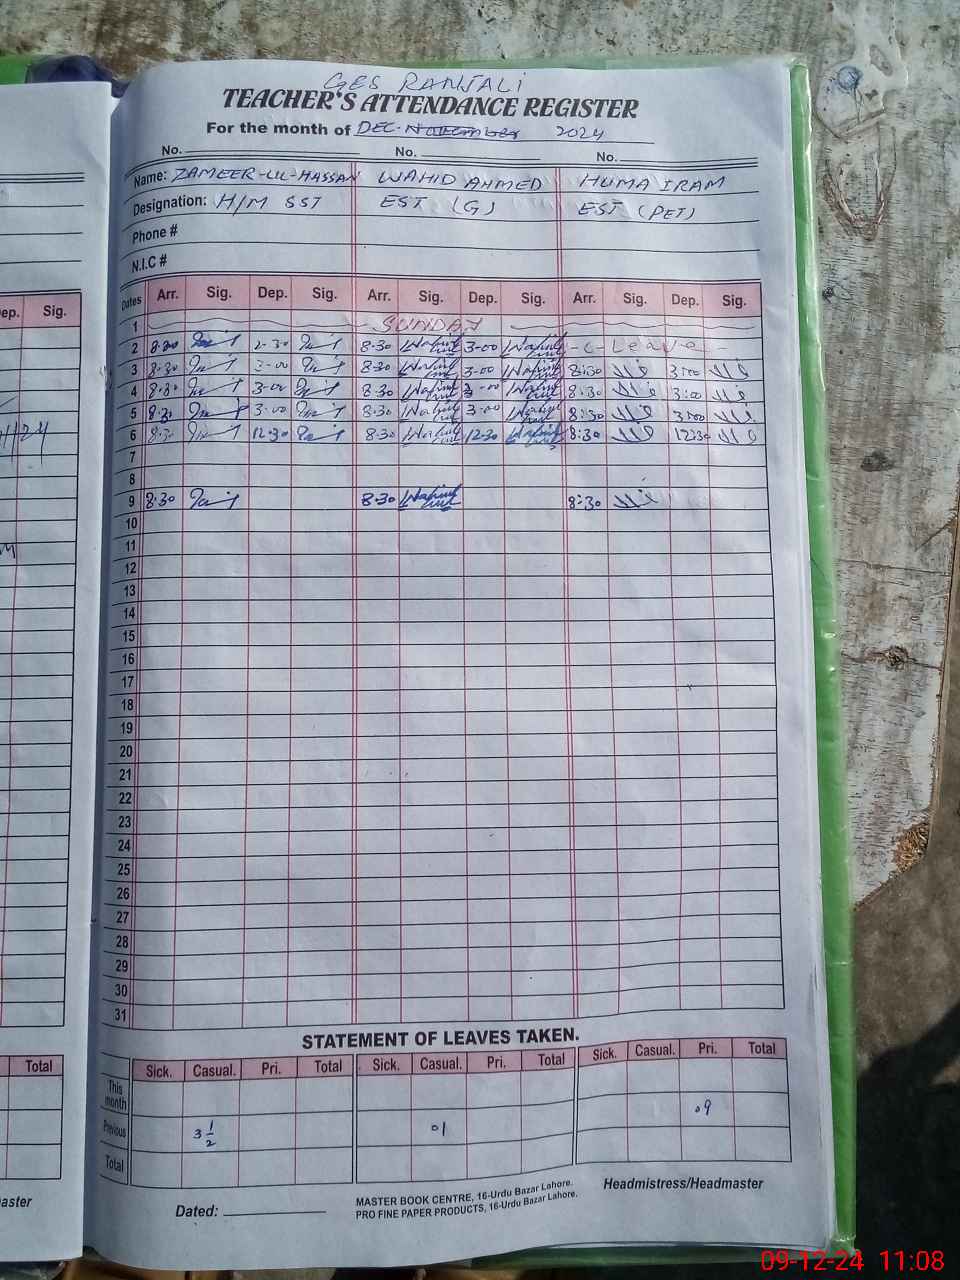 GES RANJALI
TEACHER'S ATTENDANCE REGISTER
For the month of DEC. November 2024
No. No. No.
Name: ZAMEER-UL-HASSAN WAHID AHMED HUMA IRAM
Designation: H/M SST EST (G) EST (PET)
Phone #
N.I.C #
ep. Sig. Dates Arr. Sig. Dep. Sig. Arr. Sig. Dep. Sig. Arr. Sig. Dep. Sig.
1 SUNDAY
2 8.30 2.30 8.30 Wahid 3-00 Wahid -C- Leave -
3 8.30 3-00 8.30 Wahid 3-00 Wahid 8:30 3:00
4 8.30 3-00 8.30 Wahid 3-00 Wahid 8:30 3:00
5 8.30 3-00 8.30 Wahid 3-00 Wahid 8:30 3:00
6 8.30 12.30 8.30 Wahid 12.30 Wahid 8:30 12:30
7
8
9 8.30 8.30 Wahid 8:30
10
11
12
13
14
15
16
17
18
19
20
21
22
23
24
25
26
27
28
29
30
31
STATEMENT OF LEAVES TAKEN.
Total Sick. Casual. Pri. Total Sick. Casual. Pri. Total Sick. Casual. Pri. Total
This month .09
Previous 3 1/2 01
Total
aster Dated: MASTER BOOK CENTRE, 16-Urdu Bazar Lahore. Headmistress/Headmaster
PRO FINE PAPER PRODUCTS, 16-Urdu Bazar Lahore.
09-12-24 11:08